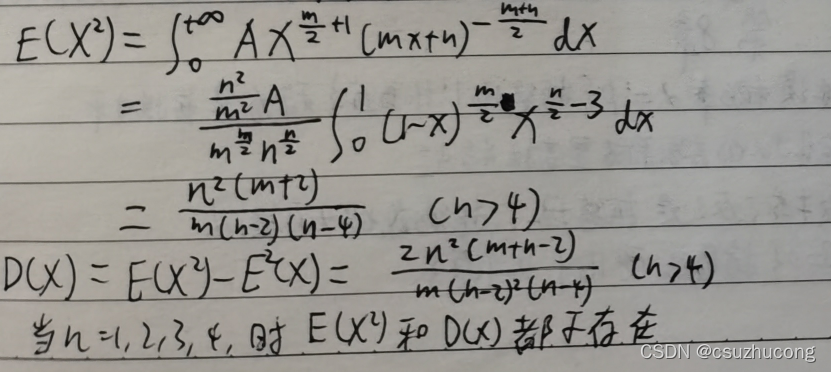 E(X²) = ∫₀^{+∞} A x^{m/2 + 1} (mx+n)^{-(m+n)/2} dx
= \frac{\frac{n²}{m²} A}{m^{m/2} n^{n/2}} ∫₀^1 (1-x)^{m/2} x^{n/2 - 3} dx
= \frac{n²(m+2)}{m(n-2)(n-4)} (n>4)
D(X) = E(X²) - E²(X) = \frac{2n²(m+n-2)}{m(n-2)²(n-4)} (n>4)
当n=1,2,3,4,时 E(X²) 和 D(X) 都不存在
CSDN @csuzhucong